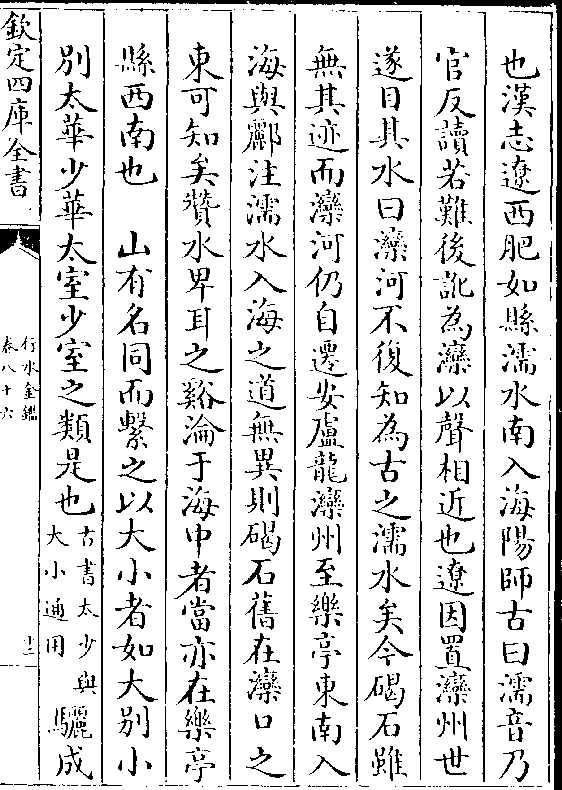 也漢志遼西肥如縣濡水南入海陽師古曰濡音乃
官反讀若難後訛為灤以聲相近也遼因置灤州世
遂目其水曰灤河不復知為古之濡水矣今碣石雖
無其迹而灤河仍自遷安盧龍灤州至樂亭東南入
海與酈注濡水入海之道無異則碣石舊在灤口之
東可知矣贊水卑耳之谿淪于海中者當亦在樂亭
縣西南也　山有名同而繫之以大小者如大别小
别太華少華太室少室之類是也古書太少與大小通用驪成
欽定四庫全書
行水金鑑
卷八十六
十二